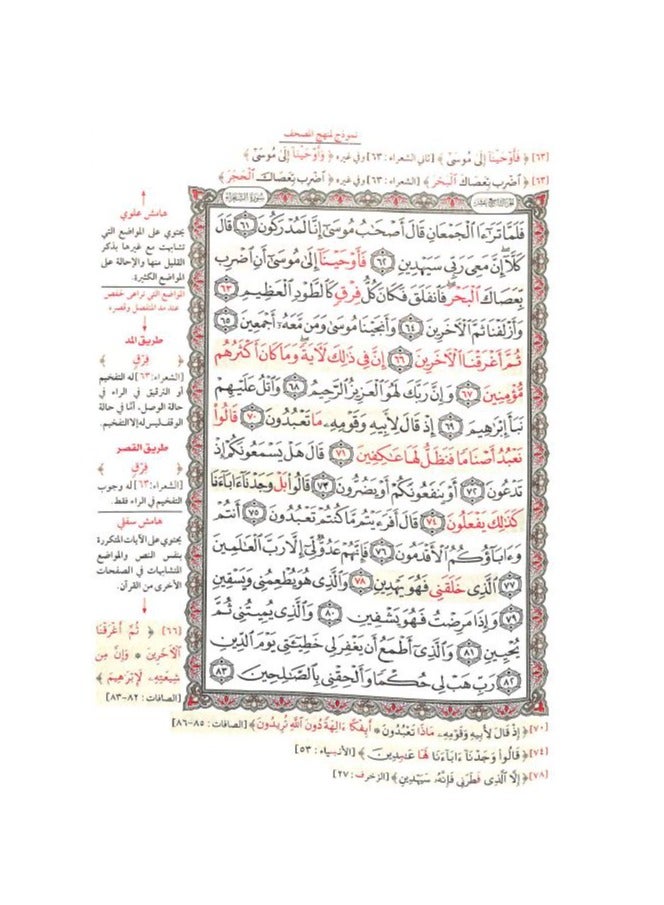 نموذج لمنهج المصحف
[٦٣] ﴿ فَأَوْحَيْنَآ إِلَىٰ مُوسَىٰٓ ﴾ [ثاني الشعراء : ٦٣] وفي غيره ﴿ وَأَوْحَيْنَآ إِلَىٰ مُوسَىٰٓ ﴾
[٦٣] ﴿ ٱضْرِب بِّعَصَاكَ ٱلْبَحْرَ ﴾ [الشعراء : ٦٣] وفي غيره ﴿ ٱضْرِب بِّعَصَاكَ ٱلْحَجَرَ ﴾
سُورَةُ الشُّعَرَاءِ
فَلَمَّا تَرَٰٓءَا ٱلْجَمْعَانِ قَالَ أَصْحَٰبُ مُوسَىٰٓ إِنَّا لَمُدْرَكُونَ ٦١ قَالَ
كَلَّآ إِنَّ مَعِىَ رَبِّى سَيَهْدِينِ ٦٢ فَأَوْحَيْنَآ إِلَىٰ مُوسَىٰٓ أَنِ ٱضْرِب
بِّعَصَاكَ ٱلْبَحْرَ فَٱنفَلَقَ فَكَانَ كُلُّ فِرْقٍ كَٱلطَّوْدِ ٱلْعَظِيمِ ٦٣
وَأَزْلَفْنَا ثَمَّ ٱلْءَاخَرِينَ ٦٤ وَأَنجَيْنَا مُوسَىٰ وَمَن مَّعَهُۥٓ أَجْمَعِينَ ٦٥
ثُمَّ أَغْرَقْنَا ٱلْءَاخَرِينَ ٦٦ إِنَّ فِى ذَٰلِكَ لَءَايَةً وَمَا كَانَ أَكْثَرُهُم
مُّؤْمِنِينَ ٦٧ وَإِنَّ رَبَّكَ لَهُوَ ٱلْعَزِيزُ ٱلرَّحِيمُ ٦٨ وَٱتْلُ عَلَيْهِمْ
نَبَأَ إِبْرَٰهِيمَ ٦٩ إِذْ قَالَ لِأَبِيهِ وَقَوْمِهِۦ مَا تَعْبُدُونَ ٧٠ قَالُوا۟
نَعْبُدُ أَصْنَامًا فَنَظَلُّ لَهَا عَٰكِفِينَ ٧١ قَالَ هَلْ يَسْمَعُونَكُمْ إِذْ
تَدْعُونَ ٧٢ أَوْ يَنفَعُونَكُمْ أَوْ يَضُرُّونَ ٧٣ قَالُوا۟ بَلْ وَجَدْنَآ ءَابَآءَنَا
كَذَٰلِكَ يَفْعَلُونَ ٧٤ قَالَ أَفَرَءَيْتُم مَّا كُنتُمْ تَعْبُدُونَ ٧٥ أَنتُمْ
وَءَابَآؤُكُمُ ٱلْأَقْدَمُونَ ٧٦ فَإِنَّهُمْ عَدُوٌّ لِّىٓ إِلَّا رَبَّ ٱلْعَٰلَمِينَ
٧٧ ٱلَّذِى خَلَقَنِى فَهُوَ يَهْدِينِ ٧٨ وَٱلَّذِى هُوَ يُطْعِمُنِى وَيَسْقِينِ
٧٩ وَإِذَا مَرِضْتُ فَهُوَ يَشْفِينِ ٨٠ وَٱلَّذِى يُمِيتُنِى ثُمَّ
يُحْيِينِ ٨١ وَٱلَّذِىٓ أَطْمَعُ أَن يَغْفِرَ لِى خَطِيٓـَٔتِى يَوْمَ ٱلدِّينِ
٨٢ رَبِّ هَبْ لِى حُكْمًا وَأَلْحِقْنِى بِٱلصَّٰلِحِينَ ٨٣
هامش علوي
يحتوي على المواضع التي
تشابهت مع غيرها بذكر
القليل منها والإحالة على
المواضع الكثيرة.
المواضع التي تراعى لحفص
عند مد المنفصل وقصره
طريق المد
﴿ فِرْقٍ ﴾
[الشعراء:٦٣] له التفخيم
أو الترقيق في الراء في
حالة الوصل، أمّا في حالة
الوقف ليس له إلا التفخيم.
طريق القصر
﴿ فِرْقٍ ﴾
[الشعراء:٦٣] له وجوب
التفخيم في الراء فقط.
هامش سفلي
يحتوي على الآيات المتكررة
بنفس النص والمواضع
المتشابهات في الصفحات
الأخرى من القرآن.
[٦٦] ﴿ ثُمَّ أَغْرَقْنَا
ٱلْءَاخَرِينَ * وَإِنَّ مِن
شِيعَتِهِۦ لَإِبْرَٰهِيمَ ﴾
[الصافات : ٨٢-٨٣]
[٧٠] ﴿ إِذْ قَالَ لِأَبِيهِ وَقَوْمِهِۦ مَاذَا تَعْبُدُونَ * أَئِفْكًا ءَالِهَةً دُونَ ٱللَّهِ تُرِيدُونَ ﴾ [الصافات : ٨٥-٨٦]
[٧٤] ﴿ قَالُوا۟ وَجَدْنَآ ءَابَآءَنَا لَهَا عَٰبِدِينَ ﴾ [الأنبياء : ٥٣]
[٧٨] ﴿ إِلَّا ٱلَّذِى فَطَرَنِى فَإِنَّهُۥ سَيَهْدِينِ ﴾ [الزخرف : ٢٧]